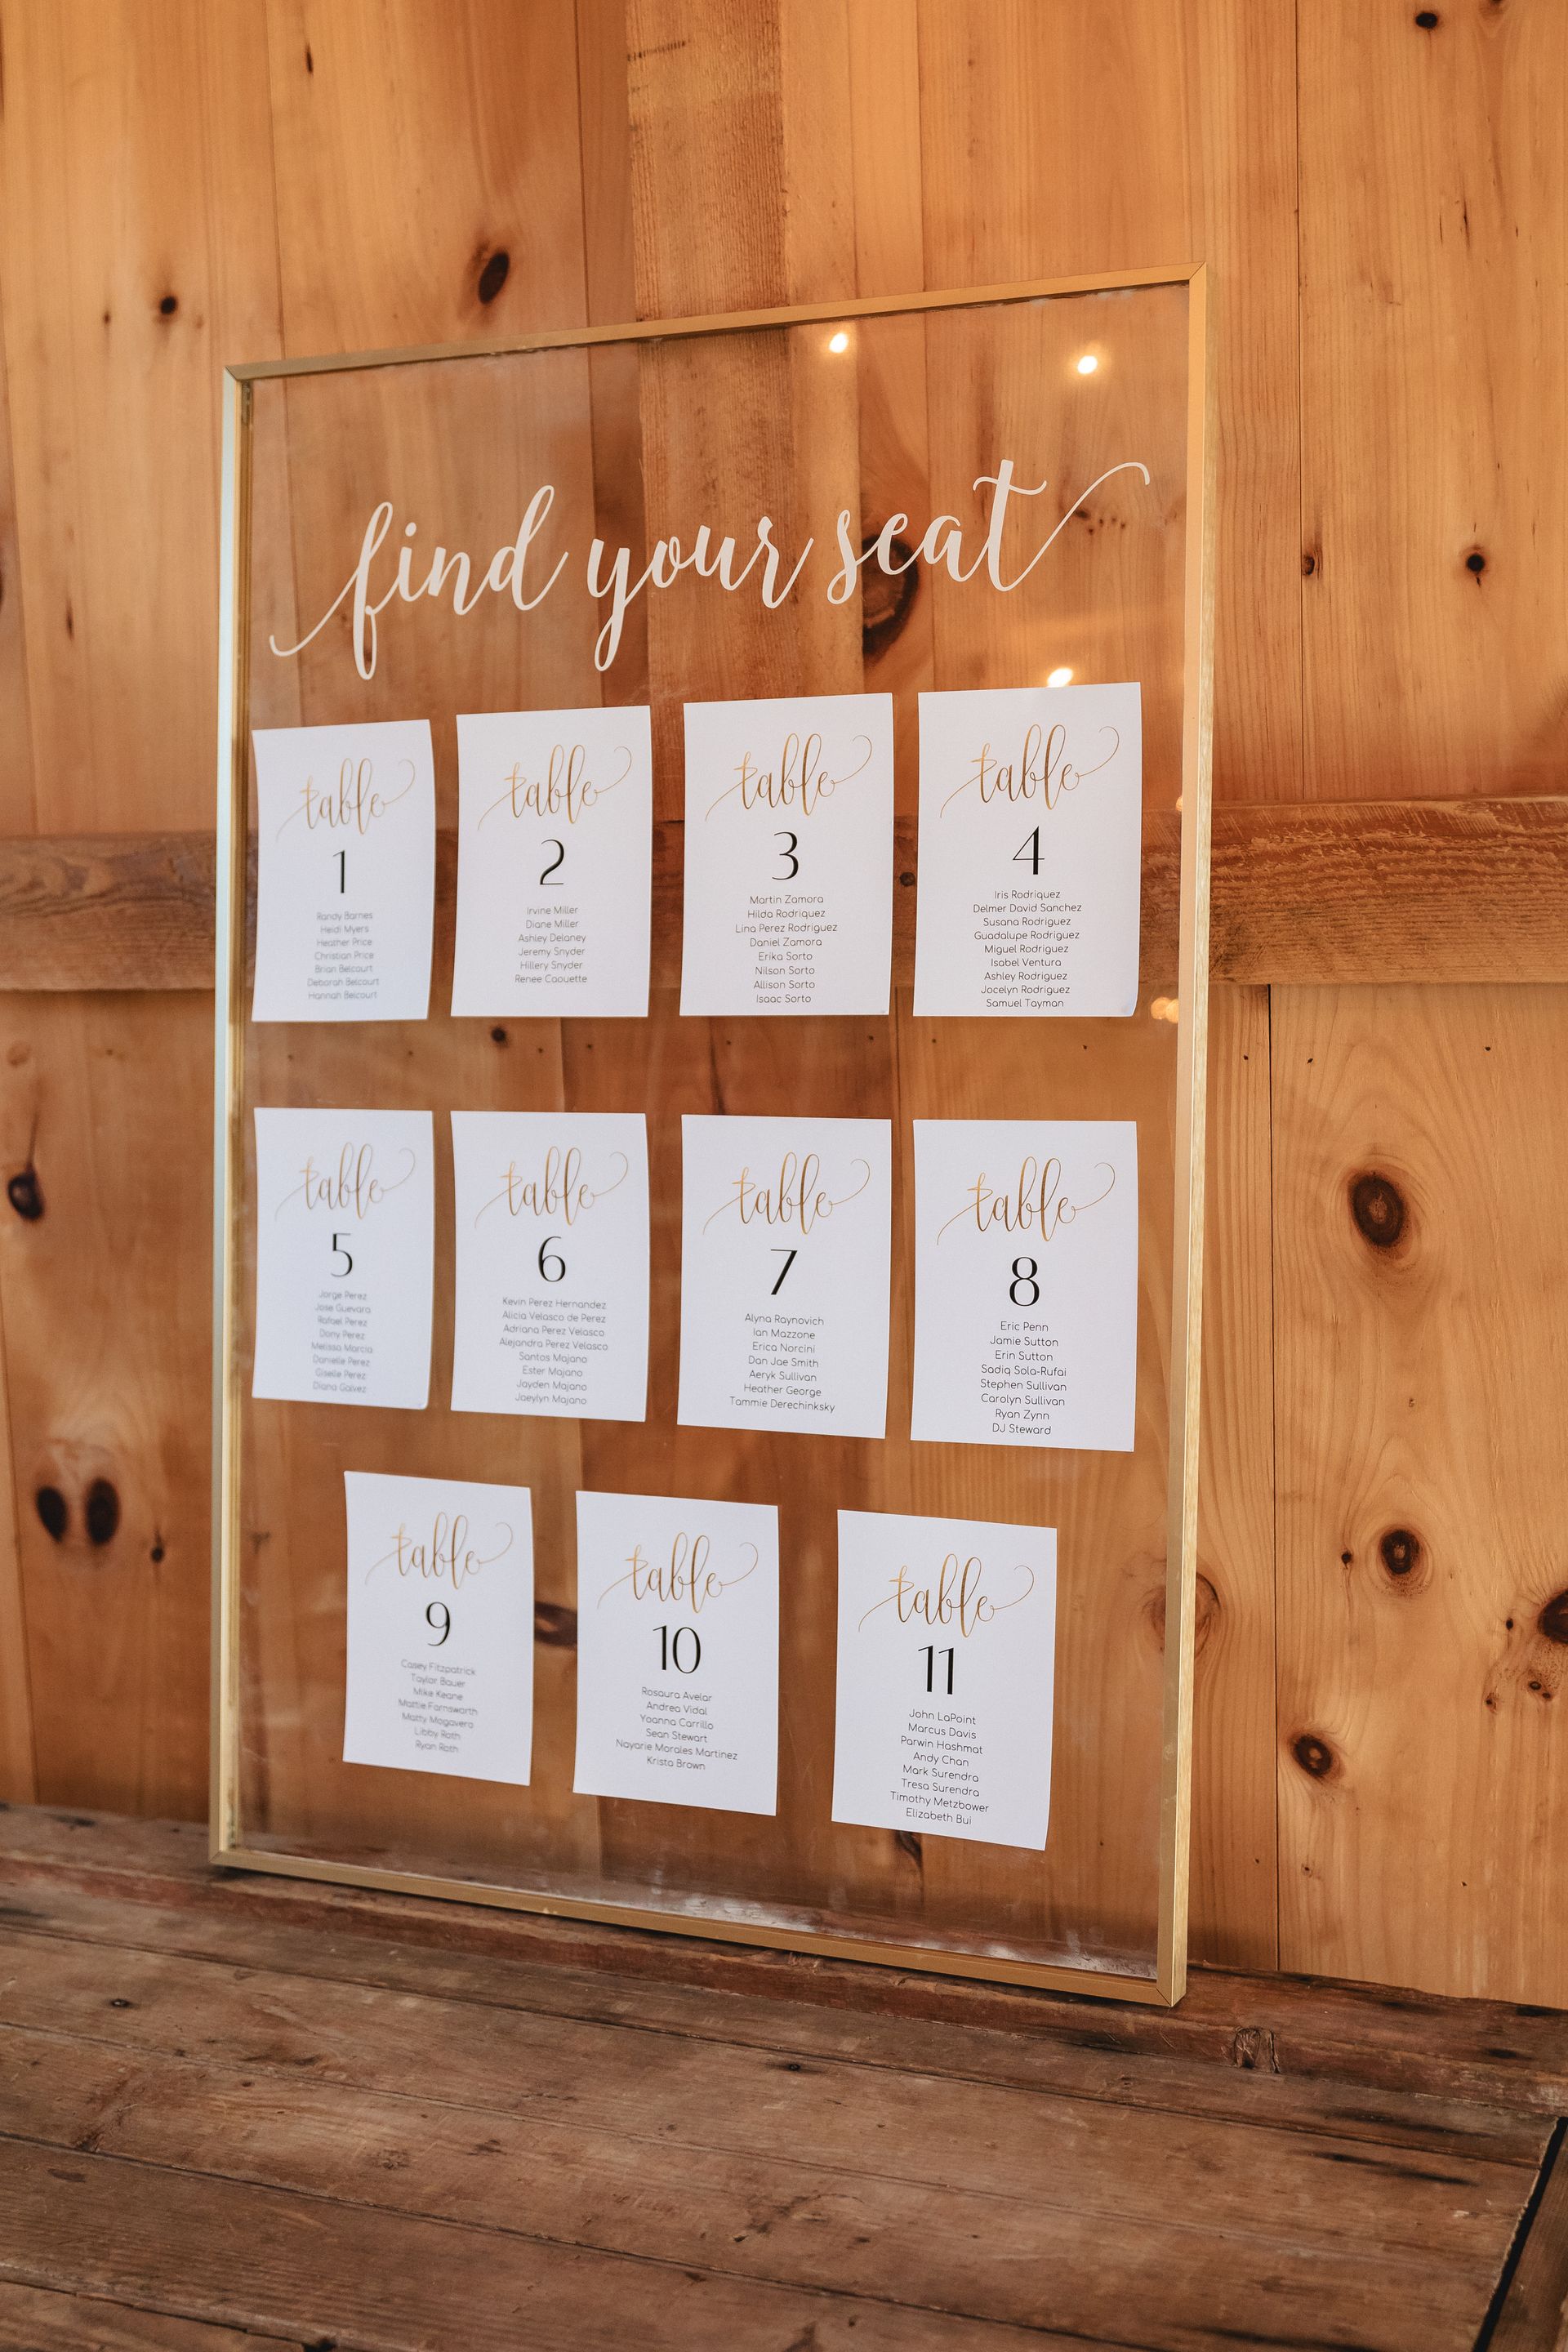 find your seat
table
1
Randy Barnes
Heidi Myers
Heather Price
Christian Price
Brian Belcourt
Deborah Belcourt
Hannah Belcourt
table
2
Irvine Miller
Diane Miller
Ashley Delaney
Jeremy Snyder
Hillery Snyder
Renee Caouette
table
3
Martin Zamora
Hilda Rodriquez
Lina Perez Rodriguez
Daniel Zamora
Erika Sorto
Nilson Sorto
Allison Sorto
Isaac Sorto
table
4
Iris Rodriquez
Delmer David Sanchez
Susana Rodriguez
Guadalupe Rodriguez
Miguel Rodriguez
Isabel Ventura
Ashley Rodriguez
Jocelyn Rodriguez
Samuel Tayman
table
5
Jorge Perez
Jose Guevara
Rafael Perez
Dony Perez
Melissa Marcia
Danielle Perez
Giselle Perez
Diana Galvez
table
6
Kevin Perez Hernandez
Alicia Velasco de Perez
Adriana Perez Velasco
Alejandra Perez Velasco
Santos Majano
Ester Majano
Jayden Majano
Jaeylyn Majano
table
7
Alyna Raynovich
Ian Mazzone
Erica Norcini
Dan Jae Smith
Aeryk Sullivan
Heather George
Tammie Derechinksky
table
8
Eric Penn
Jamie Sutton
Erin Sutton
Sadiq Sola-Rufai
Stephen Sullivan
Carolyn Sullivan
Ryan Zynn
DJ Steward
table
9
Casey Fitzpatrick
Taylor Bauer
Mike Keane
Mattie Farnsworth
Matty Mogavero
Libby Roth
Ryan Roth
table
10
Rosaura Avelar
Andrea Vidal
Yoanna Carrillo
Sean Stewart
Nayarie Morales Martinez
Krista Brown
table
11
John LaPoint
Marcus Davis
Parwin Hashmat
Andy Chan
Mark Surendra
Tresa Surendra
Timothy Metzbower
Elizabeth Bui